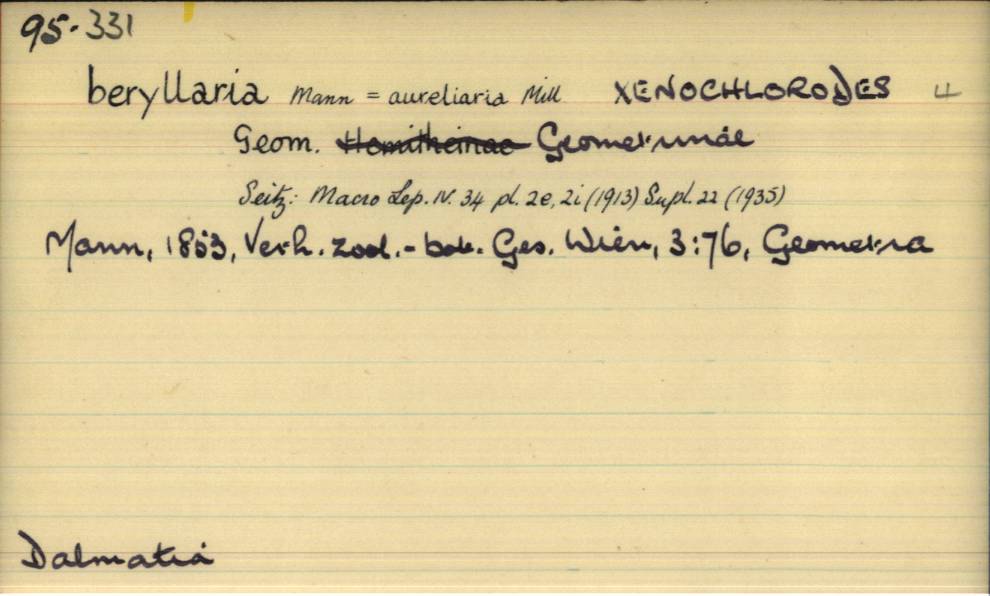 95-331
beryllaria Mann = aureliaria Mill XENOCHLORODES 4
Geom. Hemitheinae Geometrinae
Seitz: Macro Lep. IV. 34 pl. 2e, 2i (1913) Supl. 22 (1935)
Mann, 1853, Verh. zool.-bot. Ges. Wien, 3:76, Geometra
Dalmatia